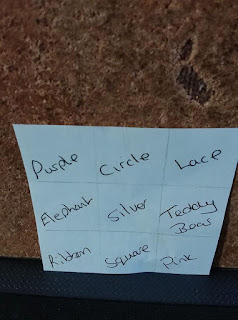 Purple Circle Lace
Elephant Silver Teddy
Bear
Ribbon Square Pink